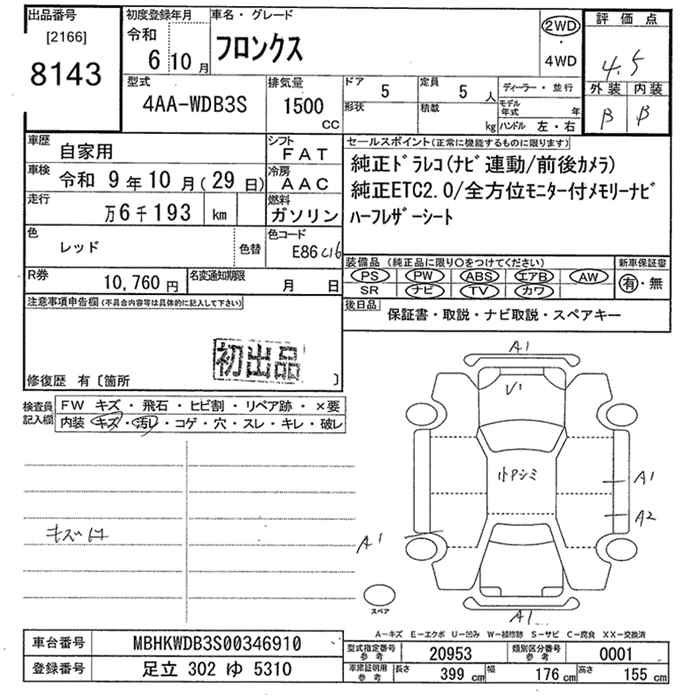 出品番号
[2166]
8143
初度登録年月
令和
6 10月
車名・グレード
フロンクス
2WD
・
4WD
評価点
4.5
外装 内装
B B
型式
4AA-WDB3S
排気量
1500
CC
ドア 5
形状
定員 5 人
積載 kg
ディーラー・並行
モデル年式 年
ハンドル 左・右
車歴 自家用
シフト FAT
車検 令和 9年10月(29日)
冷房 AAC
走行 万6千193 km
燃料 ガソリン
色 レッド 色替
色コード E86 C16
R券 10,760円
名変通知期限 月 日
セールスポイント(正常に機能するものに限ります)
純正ドラレコ(ナビ連動/前後カメラ)
純正ETC2.0/全方位モニター付メモリーナビ
ハーフレザーシート
装備品(純正品に限り○をつけてください)
PS PW ABS エアB AW
SR ナビ TV カワ
新車保証書
有・無
後日品
保証書・取説・ナビ取説・スペアキー
注意事項申告欄(不具合内容等は具体的に記入して下さい)
初出品
修復歴 有〔箇所 〕
検査員記入欄
FW キズ・飛石・ヒビ割・リペア跡・×要
内装 キズ・汚レ・コゲ・穴・スレ・キレ・破レ
A1
V1
A1
A2
A1
A1
スペア
A-キズ E-エクボ U-凹み W-補修跡 S-サビ C-腐食 XX-交換済
車台番号 MBHKWDB3S00346910
登録番号 足立 302 ゆ 5310
型式指定番号 参考 20953
類別区分番号 参考 0001
車庫証明用 参考 長さ 399 cm 幅 176 cm 高さ 155 cm